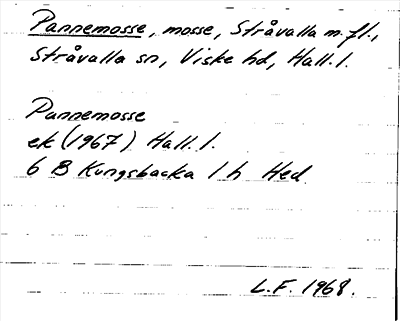 Pannemosse, mosse, Stråvalla m.fl.,
Stråvalla sn, Viske hd, Hall. l.
Pannemosse
ek (1967) Hall. l.
6 B Kungsbacka 1 h Hed
L.F. 1968.